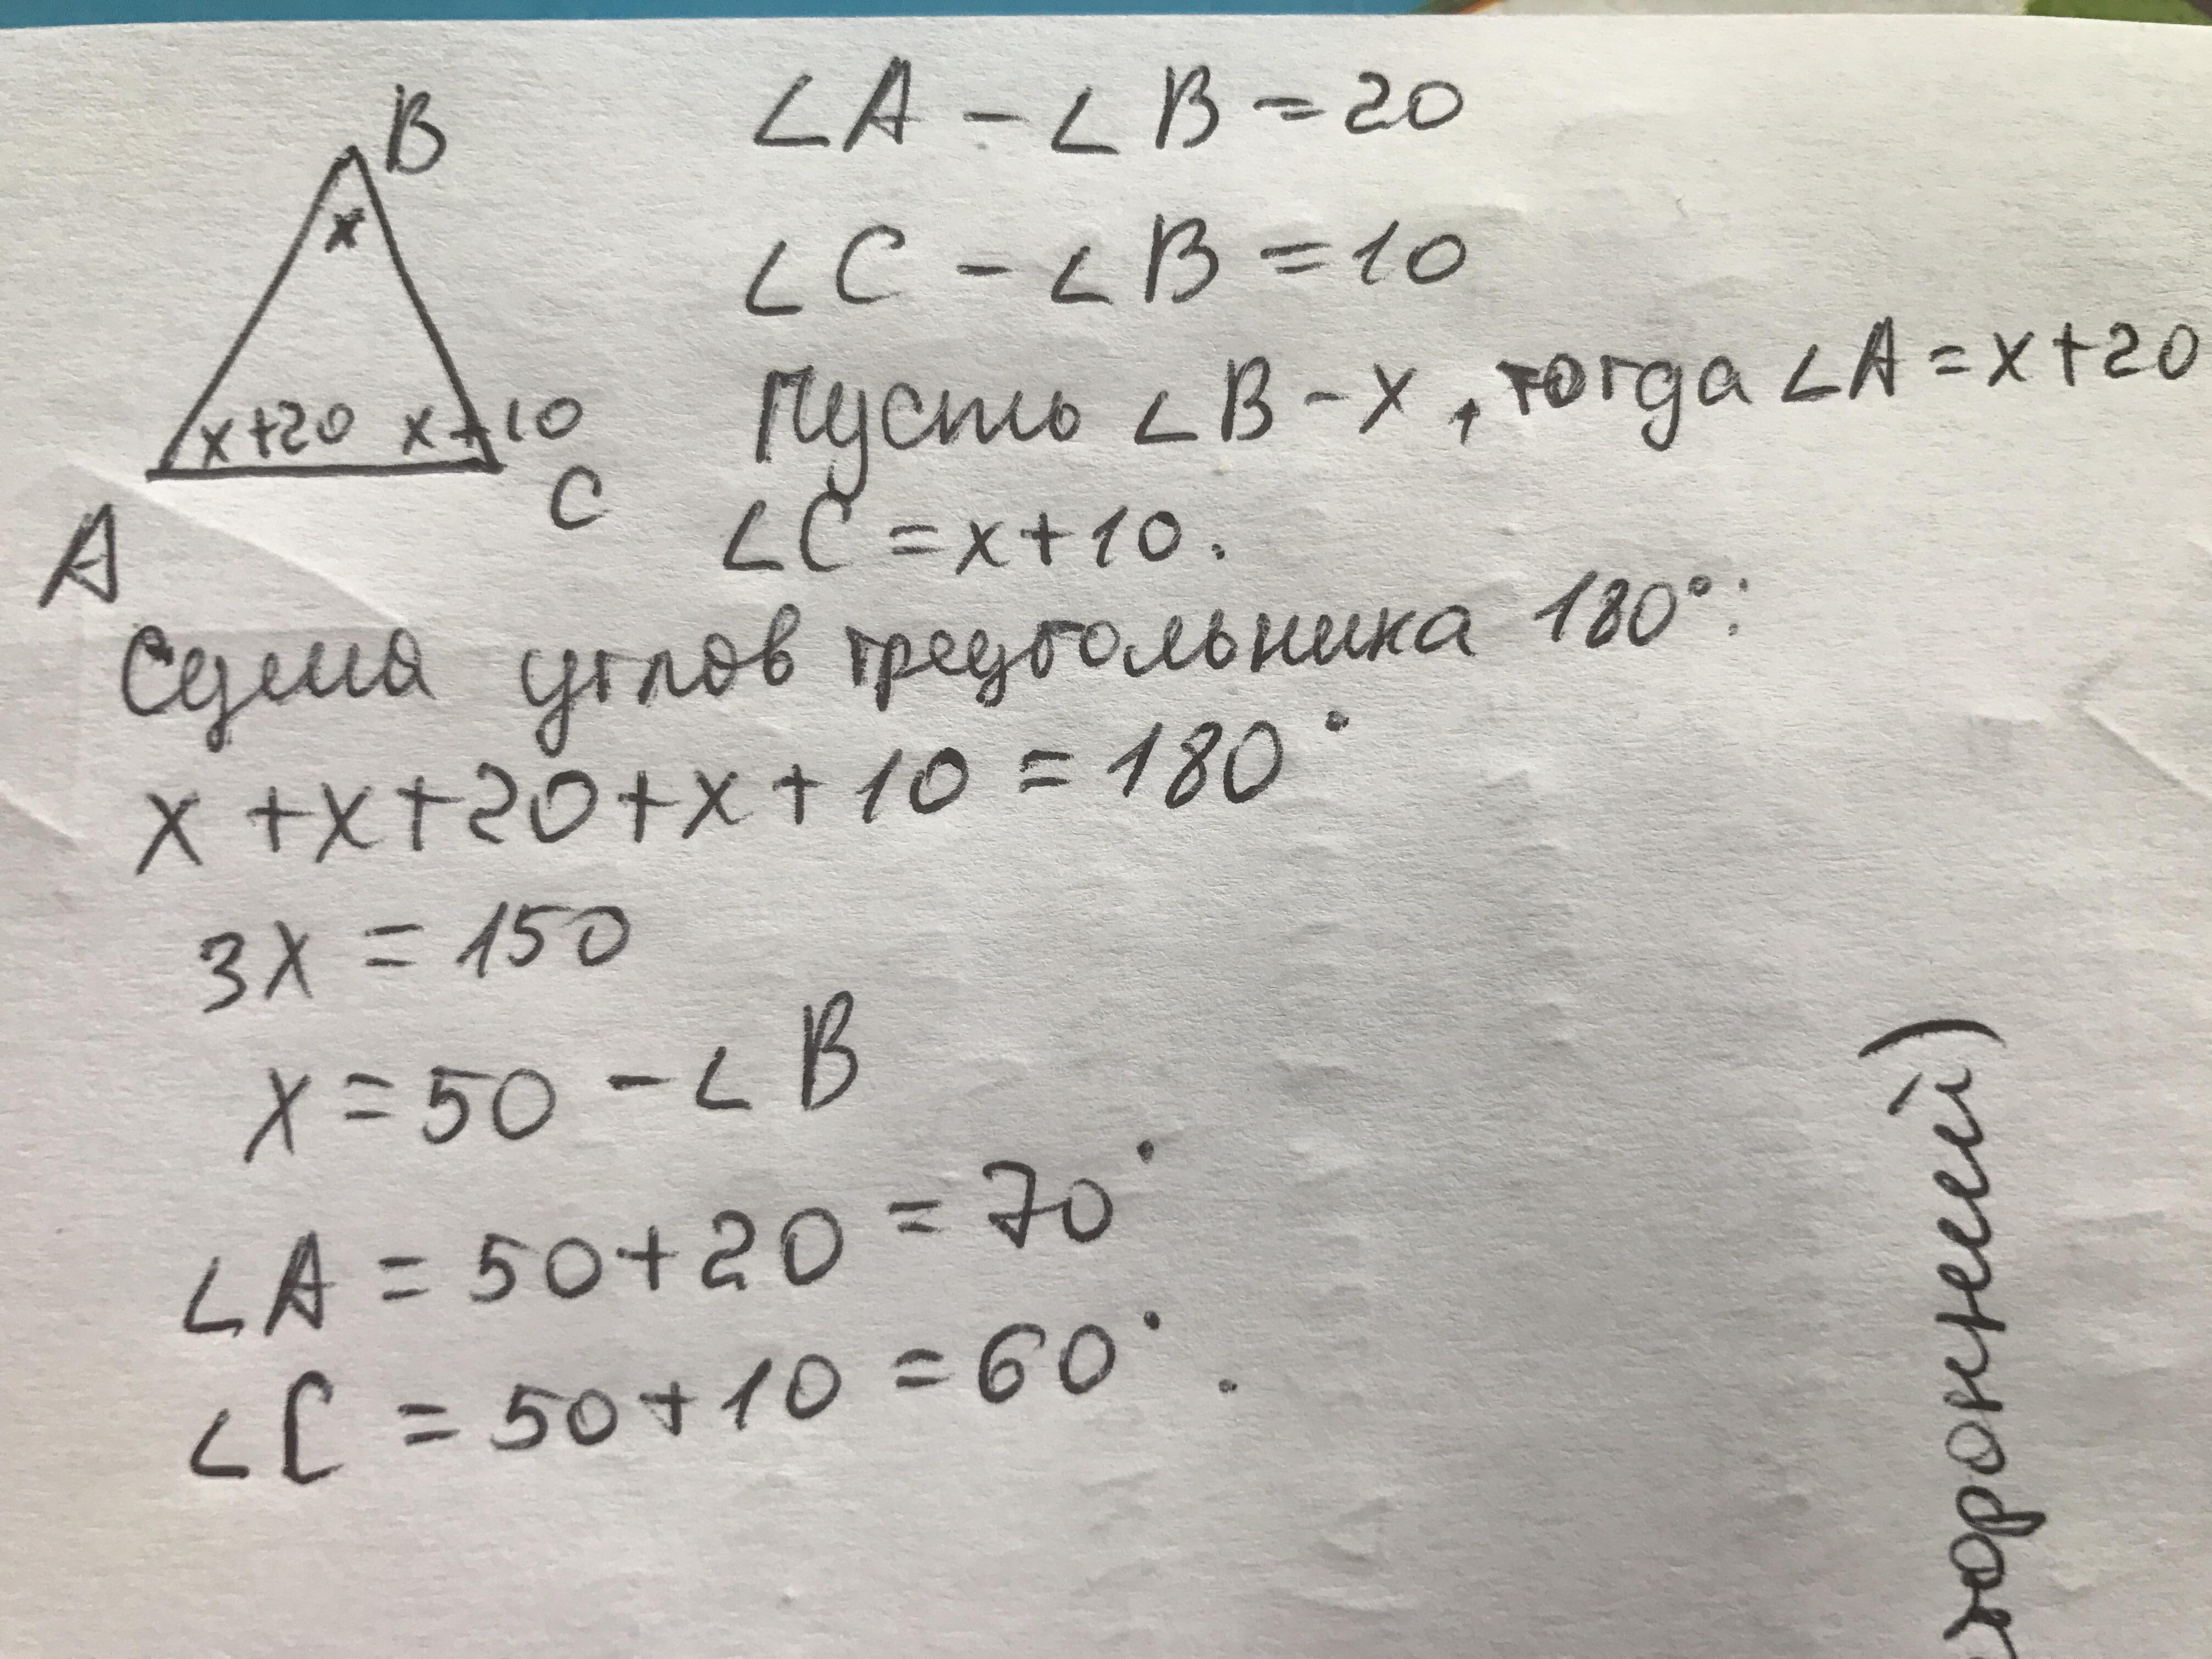 B
x
x+20 x+10
A
C
∠A - ∠B = 20
∠C - ∠B = 10
Пусть ∠B - x, тогда ∠A = x+20
∠C = x+10.
Сума углов треугольника 180°:
x + x + 20 + x + 10 = 180°
3x = 150
x = 50 - ∠B
∠A = 50 + 20 = 70°
∠C = 50 + 10 = 60°.